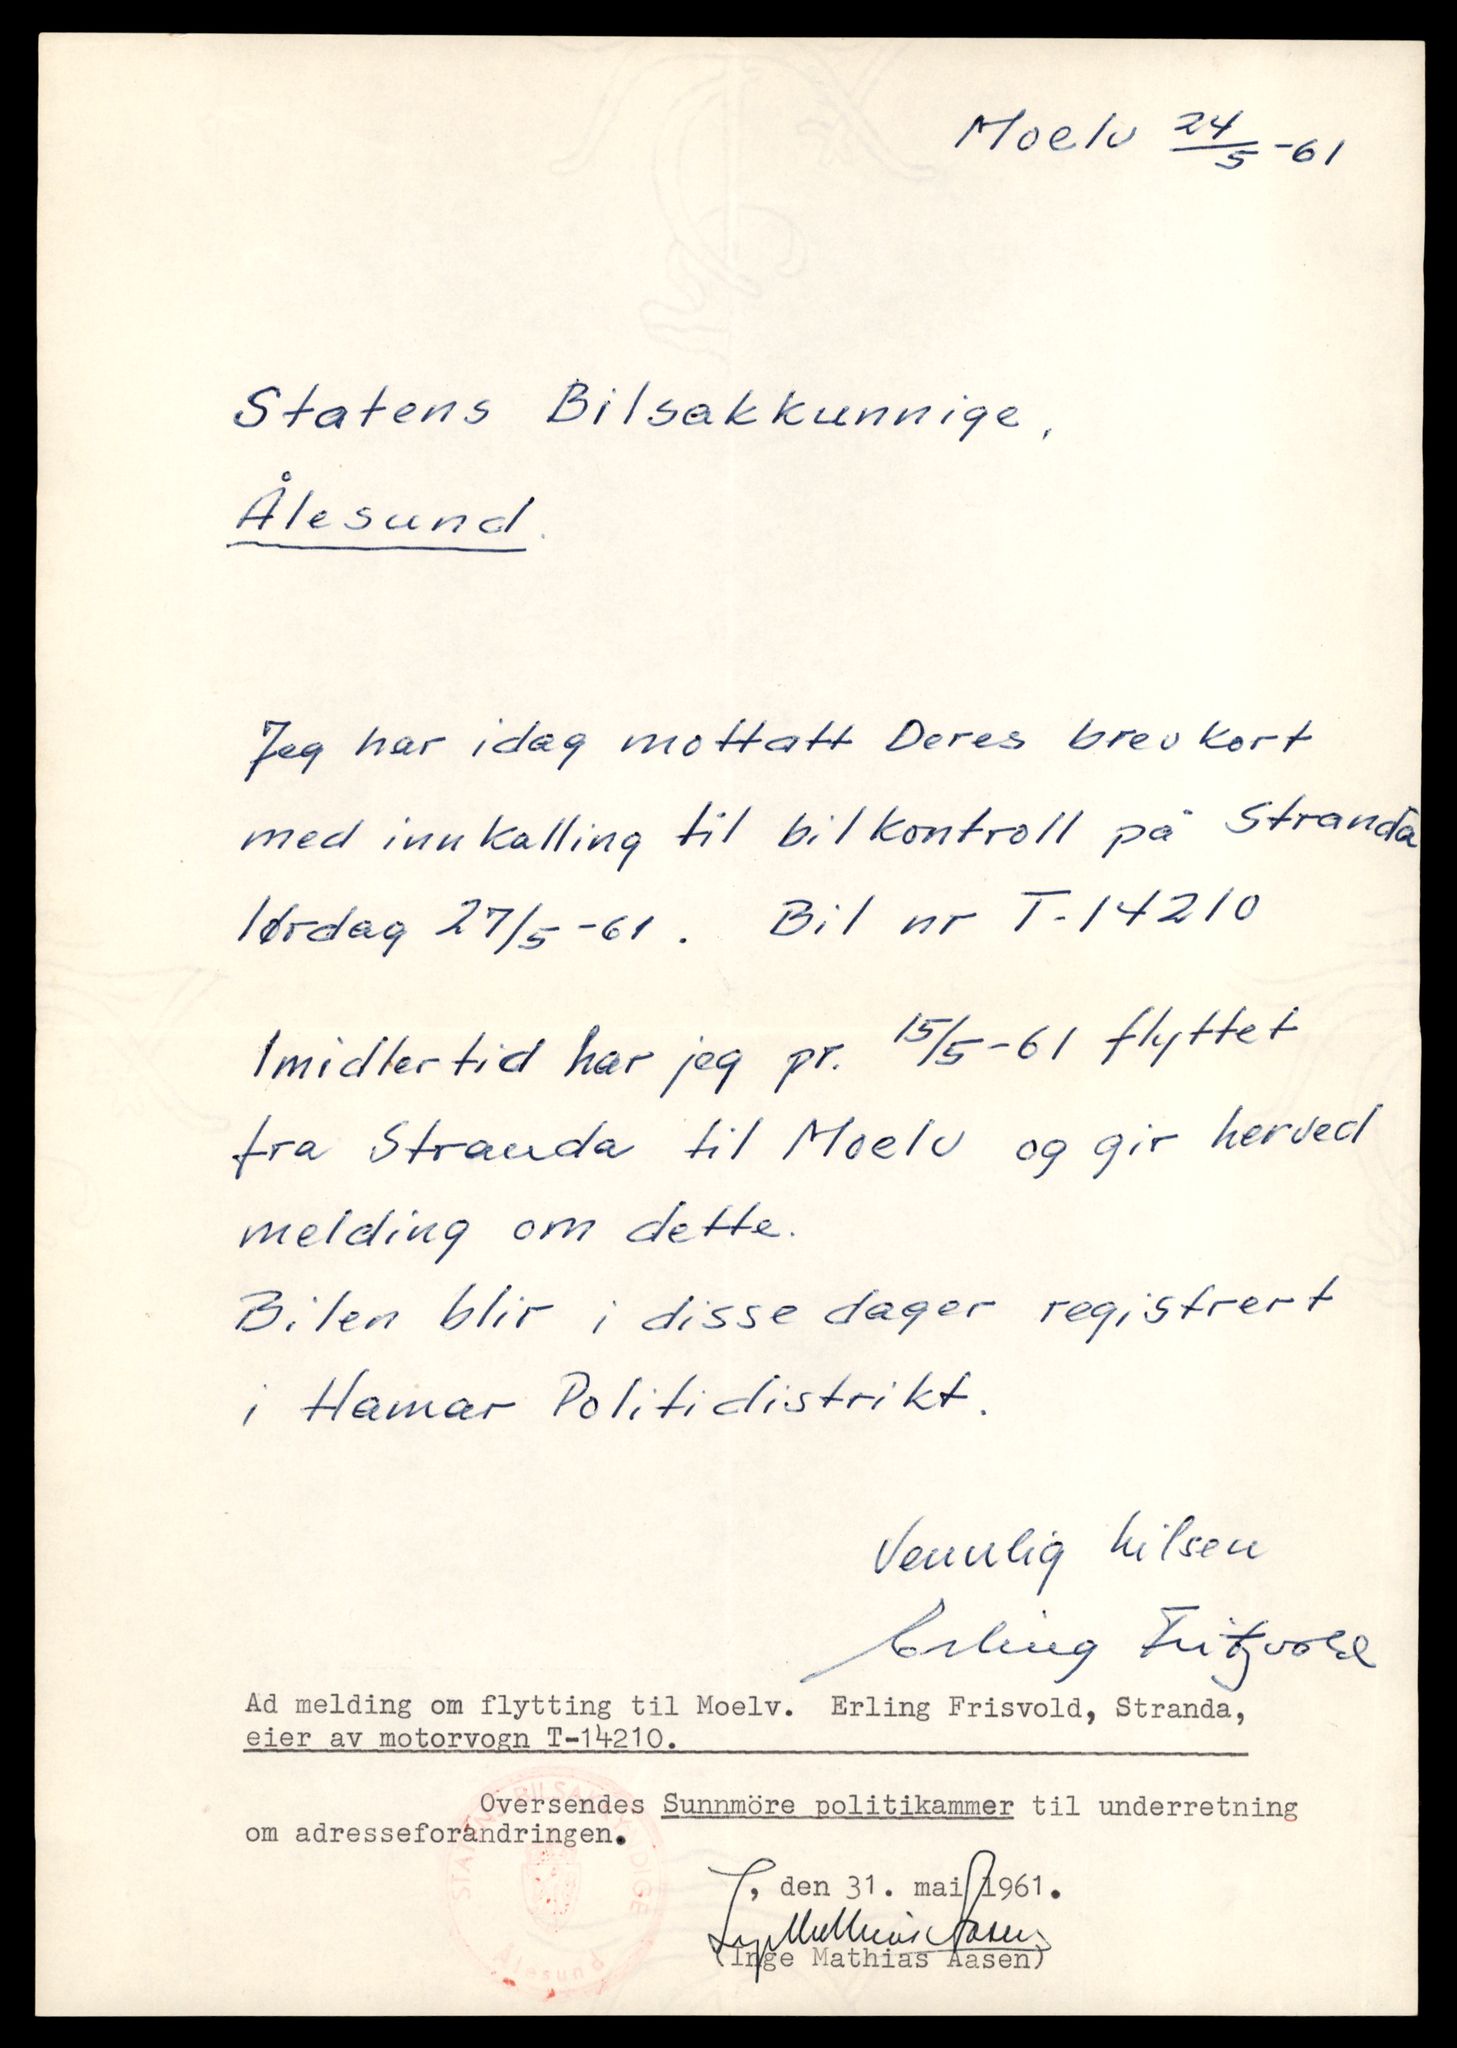 Moelv 24/5-61
Statens Bilsakkunnige,
Ålesund.
Jeg har idag mottatt Deres brevkort
med innkalling til bilkontroll på Stranda
lørdag 27/5-61. Bil nr T-14210
Imidlertid har jeg pr. 15/5-61 flyttet
fra Stranda til Moelv og gir herved
melding om dette.
Bilen blir i disse dager registrert
i Hamar Politidistrikt.
Vennlig hilsen
Erling Fritzvold
Ad melding om flytting til Moelv. Erling Frisvold, Stranda,
eier av motorvogn T-14210.
Oversendes Sunnmöre politikammer til underretning
om adresseforandringen.
, den 31. mai 1961.
Inge Mathias Aasen
(Inge Mathias Aasen)
Ålesund